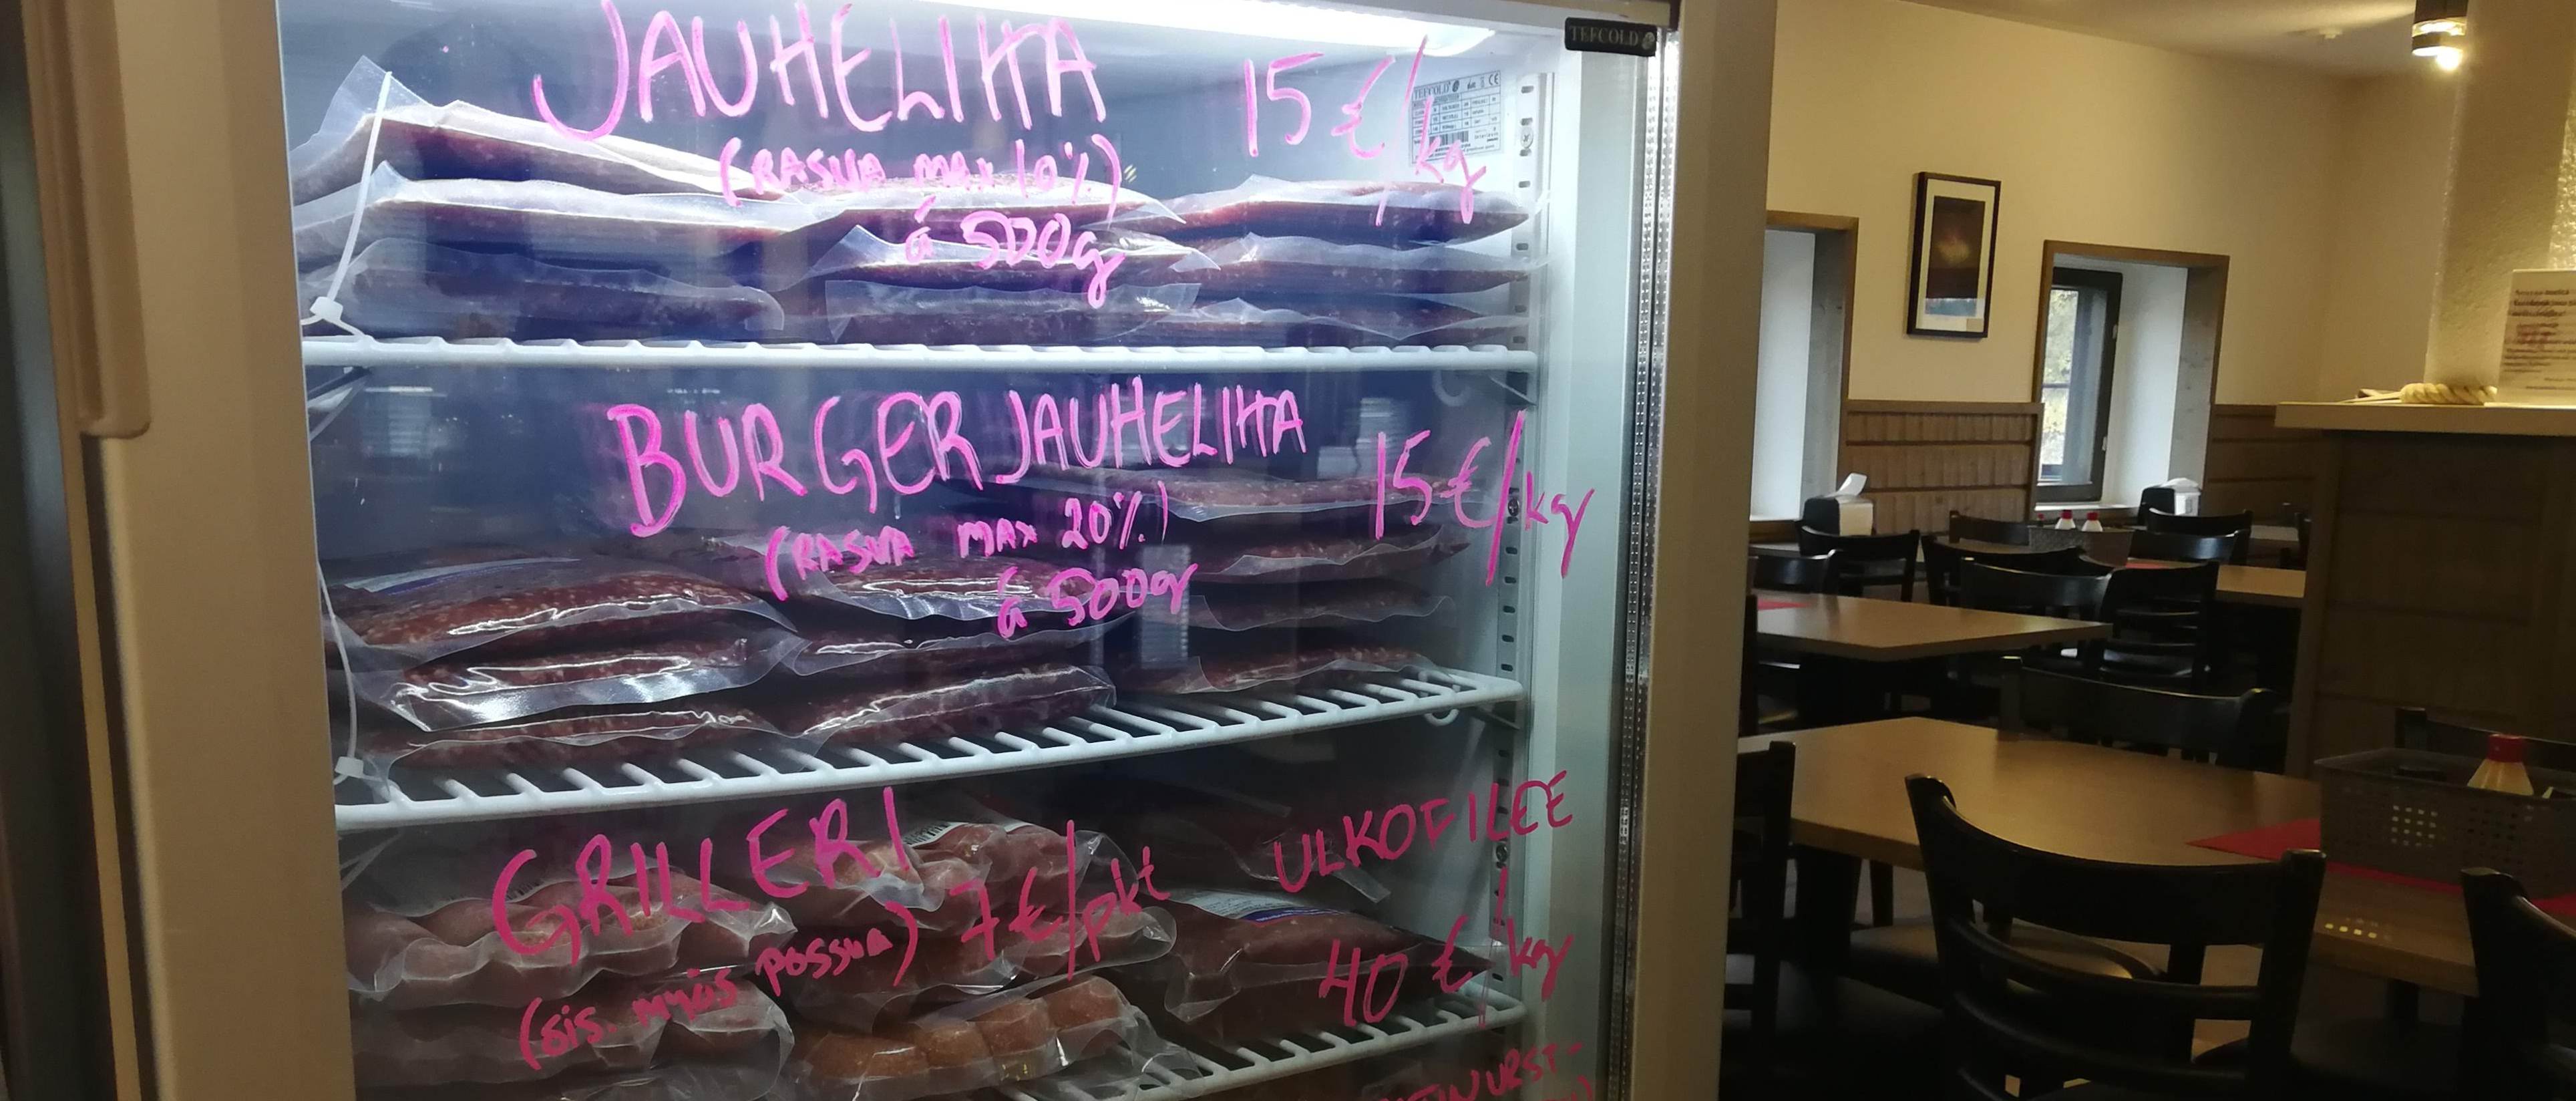 TEFCOLD
JAUHELIHA 15 €/kg
(RASVA MAX 10%)
á 500g
TEFCOLD CE
BURGERJAUHELIHA 15 €/kg
(RASVA MAX 20%)
á 500g
GRILLERI 7 €/pkt
(sis. myös possua)
ULKOFILEE
40 €/kg